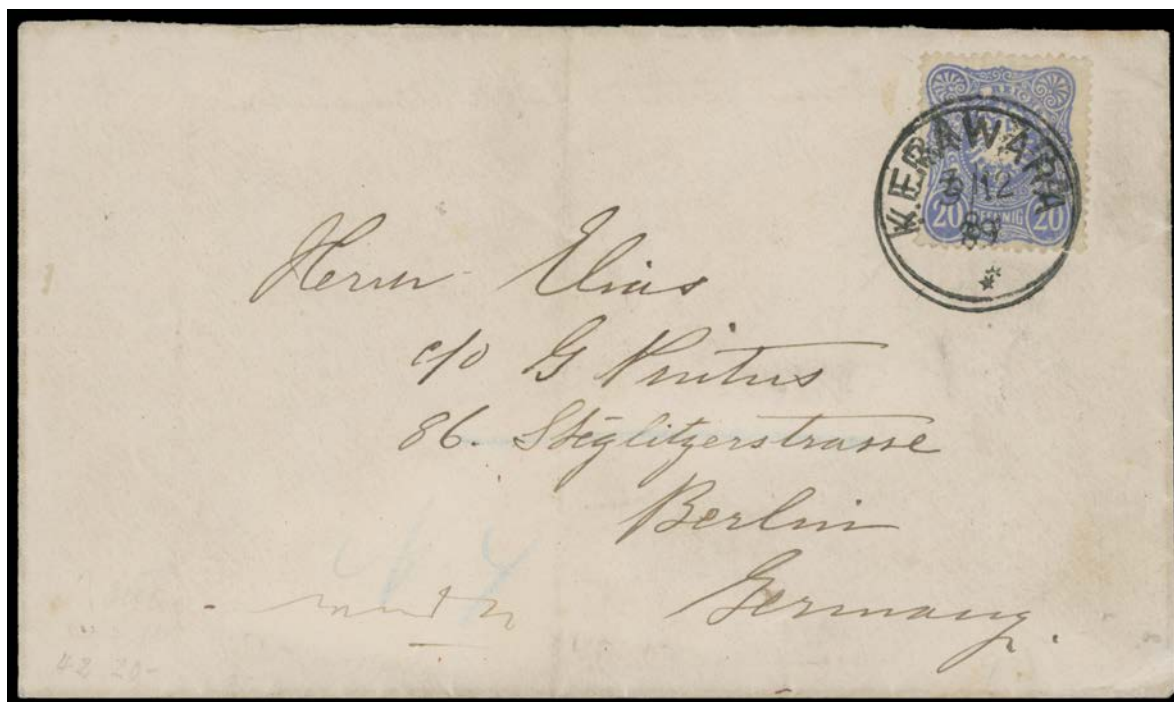 REICHS
KERAWARA
3 12
89
20 PFENNIG 20
Herrn Elias
c/o G Pintus
86. Steglitzerstrasse
Berlin
Germany.
42 20-